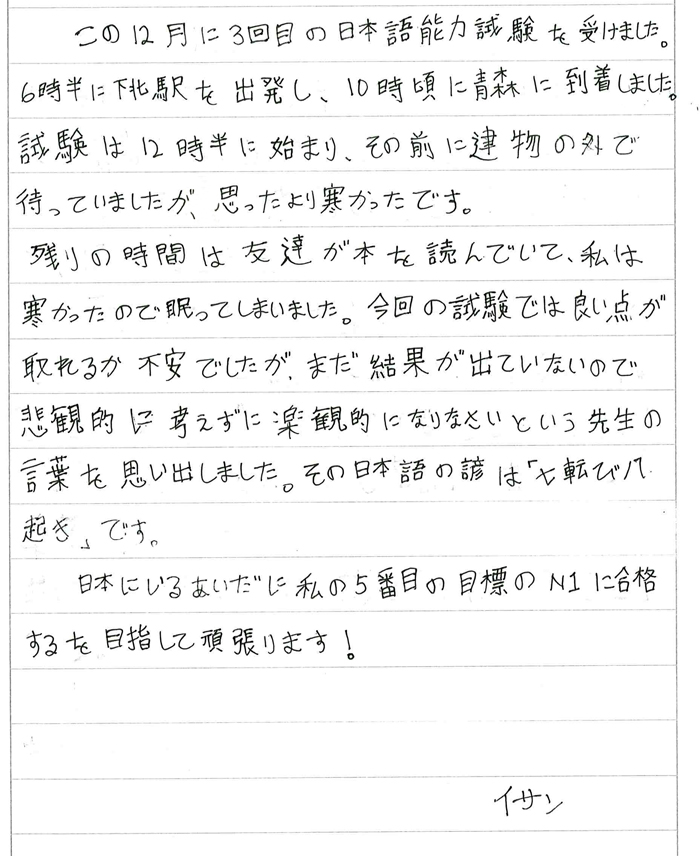 この12月に3回目の日本語能力試験を受けました。
6時半に下北駅を出発し、10時頃に青森に到着しました。
試験は12時半に始まり、その前に建物の外で
待っていましたが、思ったより寒かったです。
残りの時間は友達が本を読んでいて、私は
寒かったので眠ってしまいました。今回の試験では良い点が
取れるか不安でしたが、まだ結果が出ていないので
悲観的に考えずに楽観的になりなさいという先生の
言葉を思い出しました。その日本語の諺は「七転び八
起き」です。
日本にいるあいだに私の5番目の目標のN1に合格
するを目指して頑張ります!
イサン